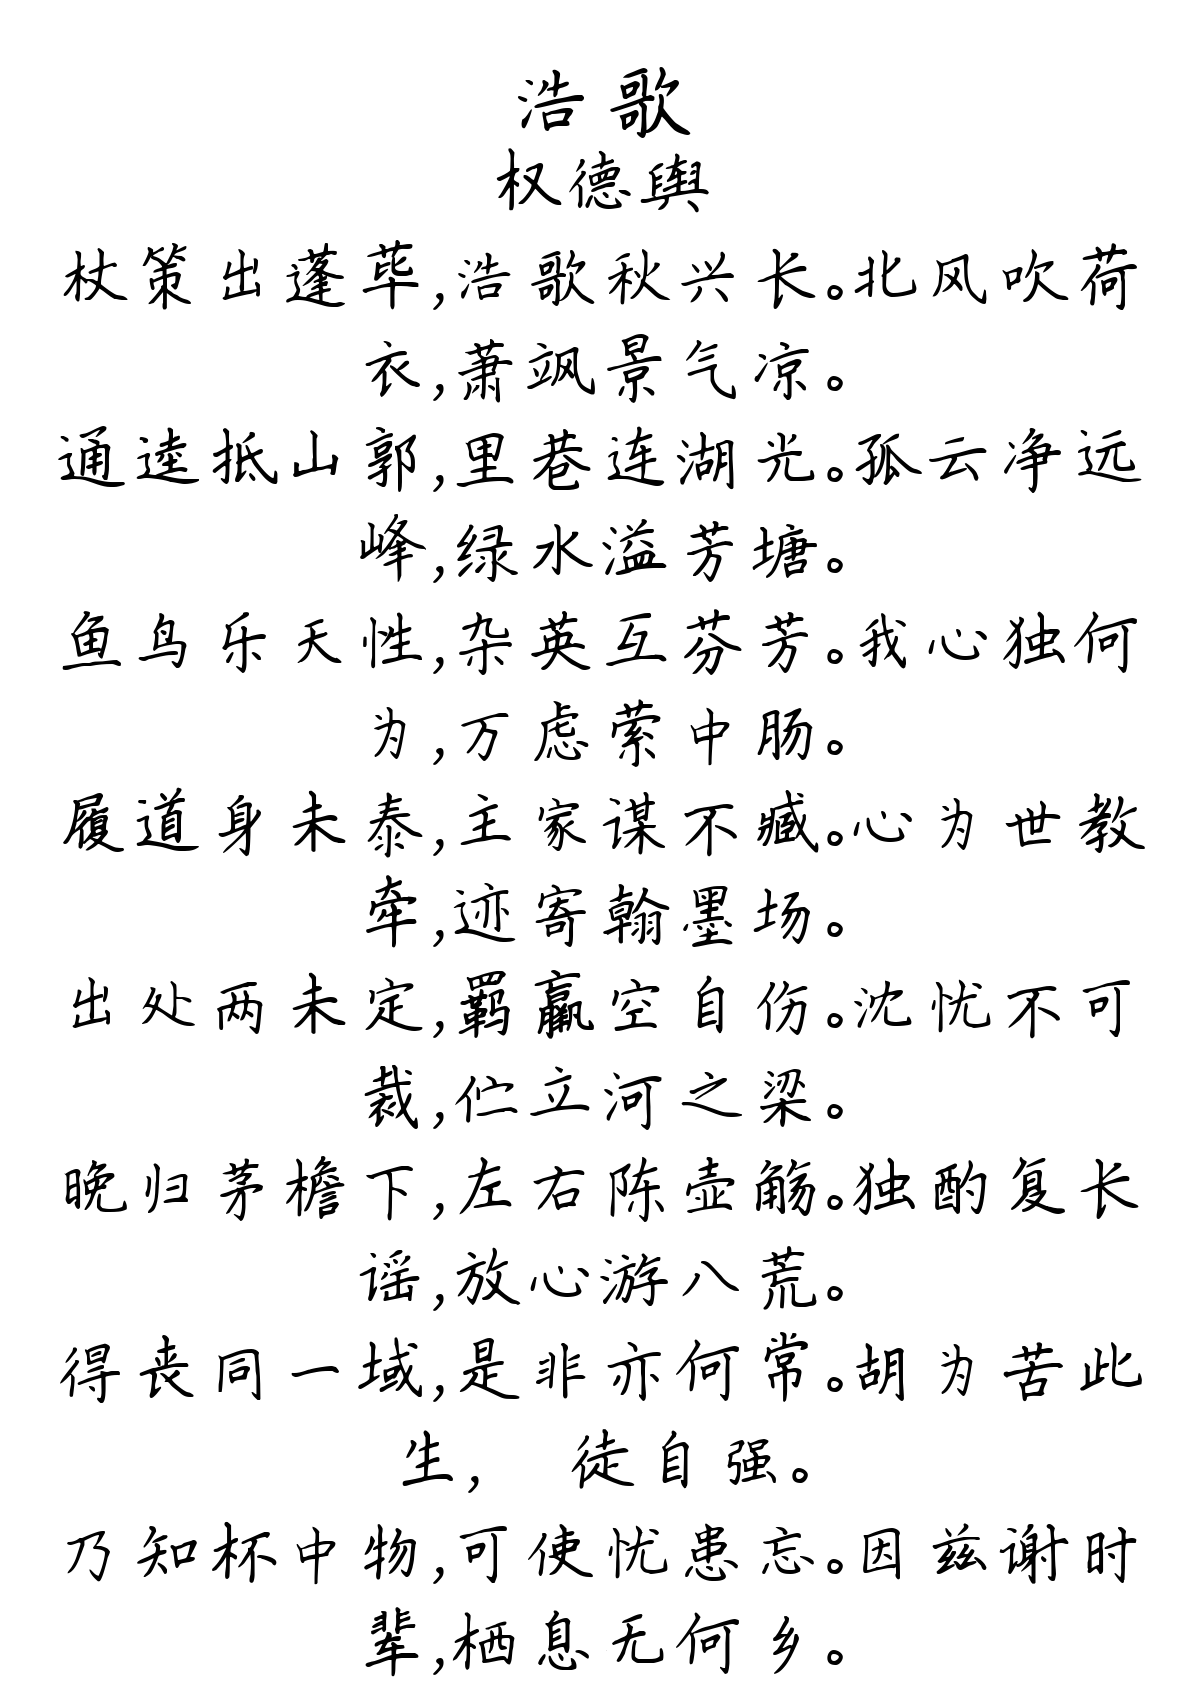 浩歌
权德舆
杖策出蓬荜,浩歌秋兴长。北风吹荷
衣,萧飒景气凉。
通逵抵山郭,里巷连湖光。孤云净远
峰,绿水溢芳塘。
鱼鸟乐天性,杂英互芬芳。我心独何
为,万虑萦中肠。
履道身未泰,主家谋不臧。心为世教
牵,迹寄翰墨场。
出处两未定,羁羸空自伤。沈忧不可
裁,伫立河之梁。
晚归茅檐下,左右陈壶觞。独酌复长
谣,放心游八荒。
得丧同一域,是非亦何常。胡为苦此
生, 徒自强。
乃知杯中物,可使忧患忘。因兹谢时
辈,栖息无何乡。